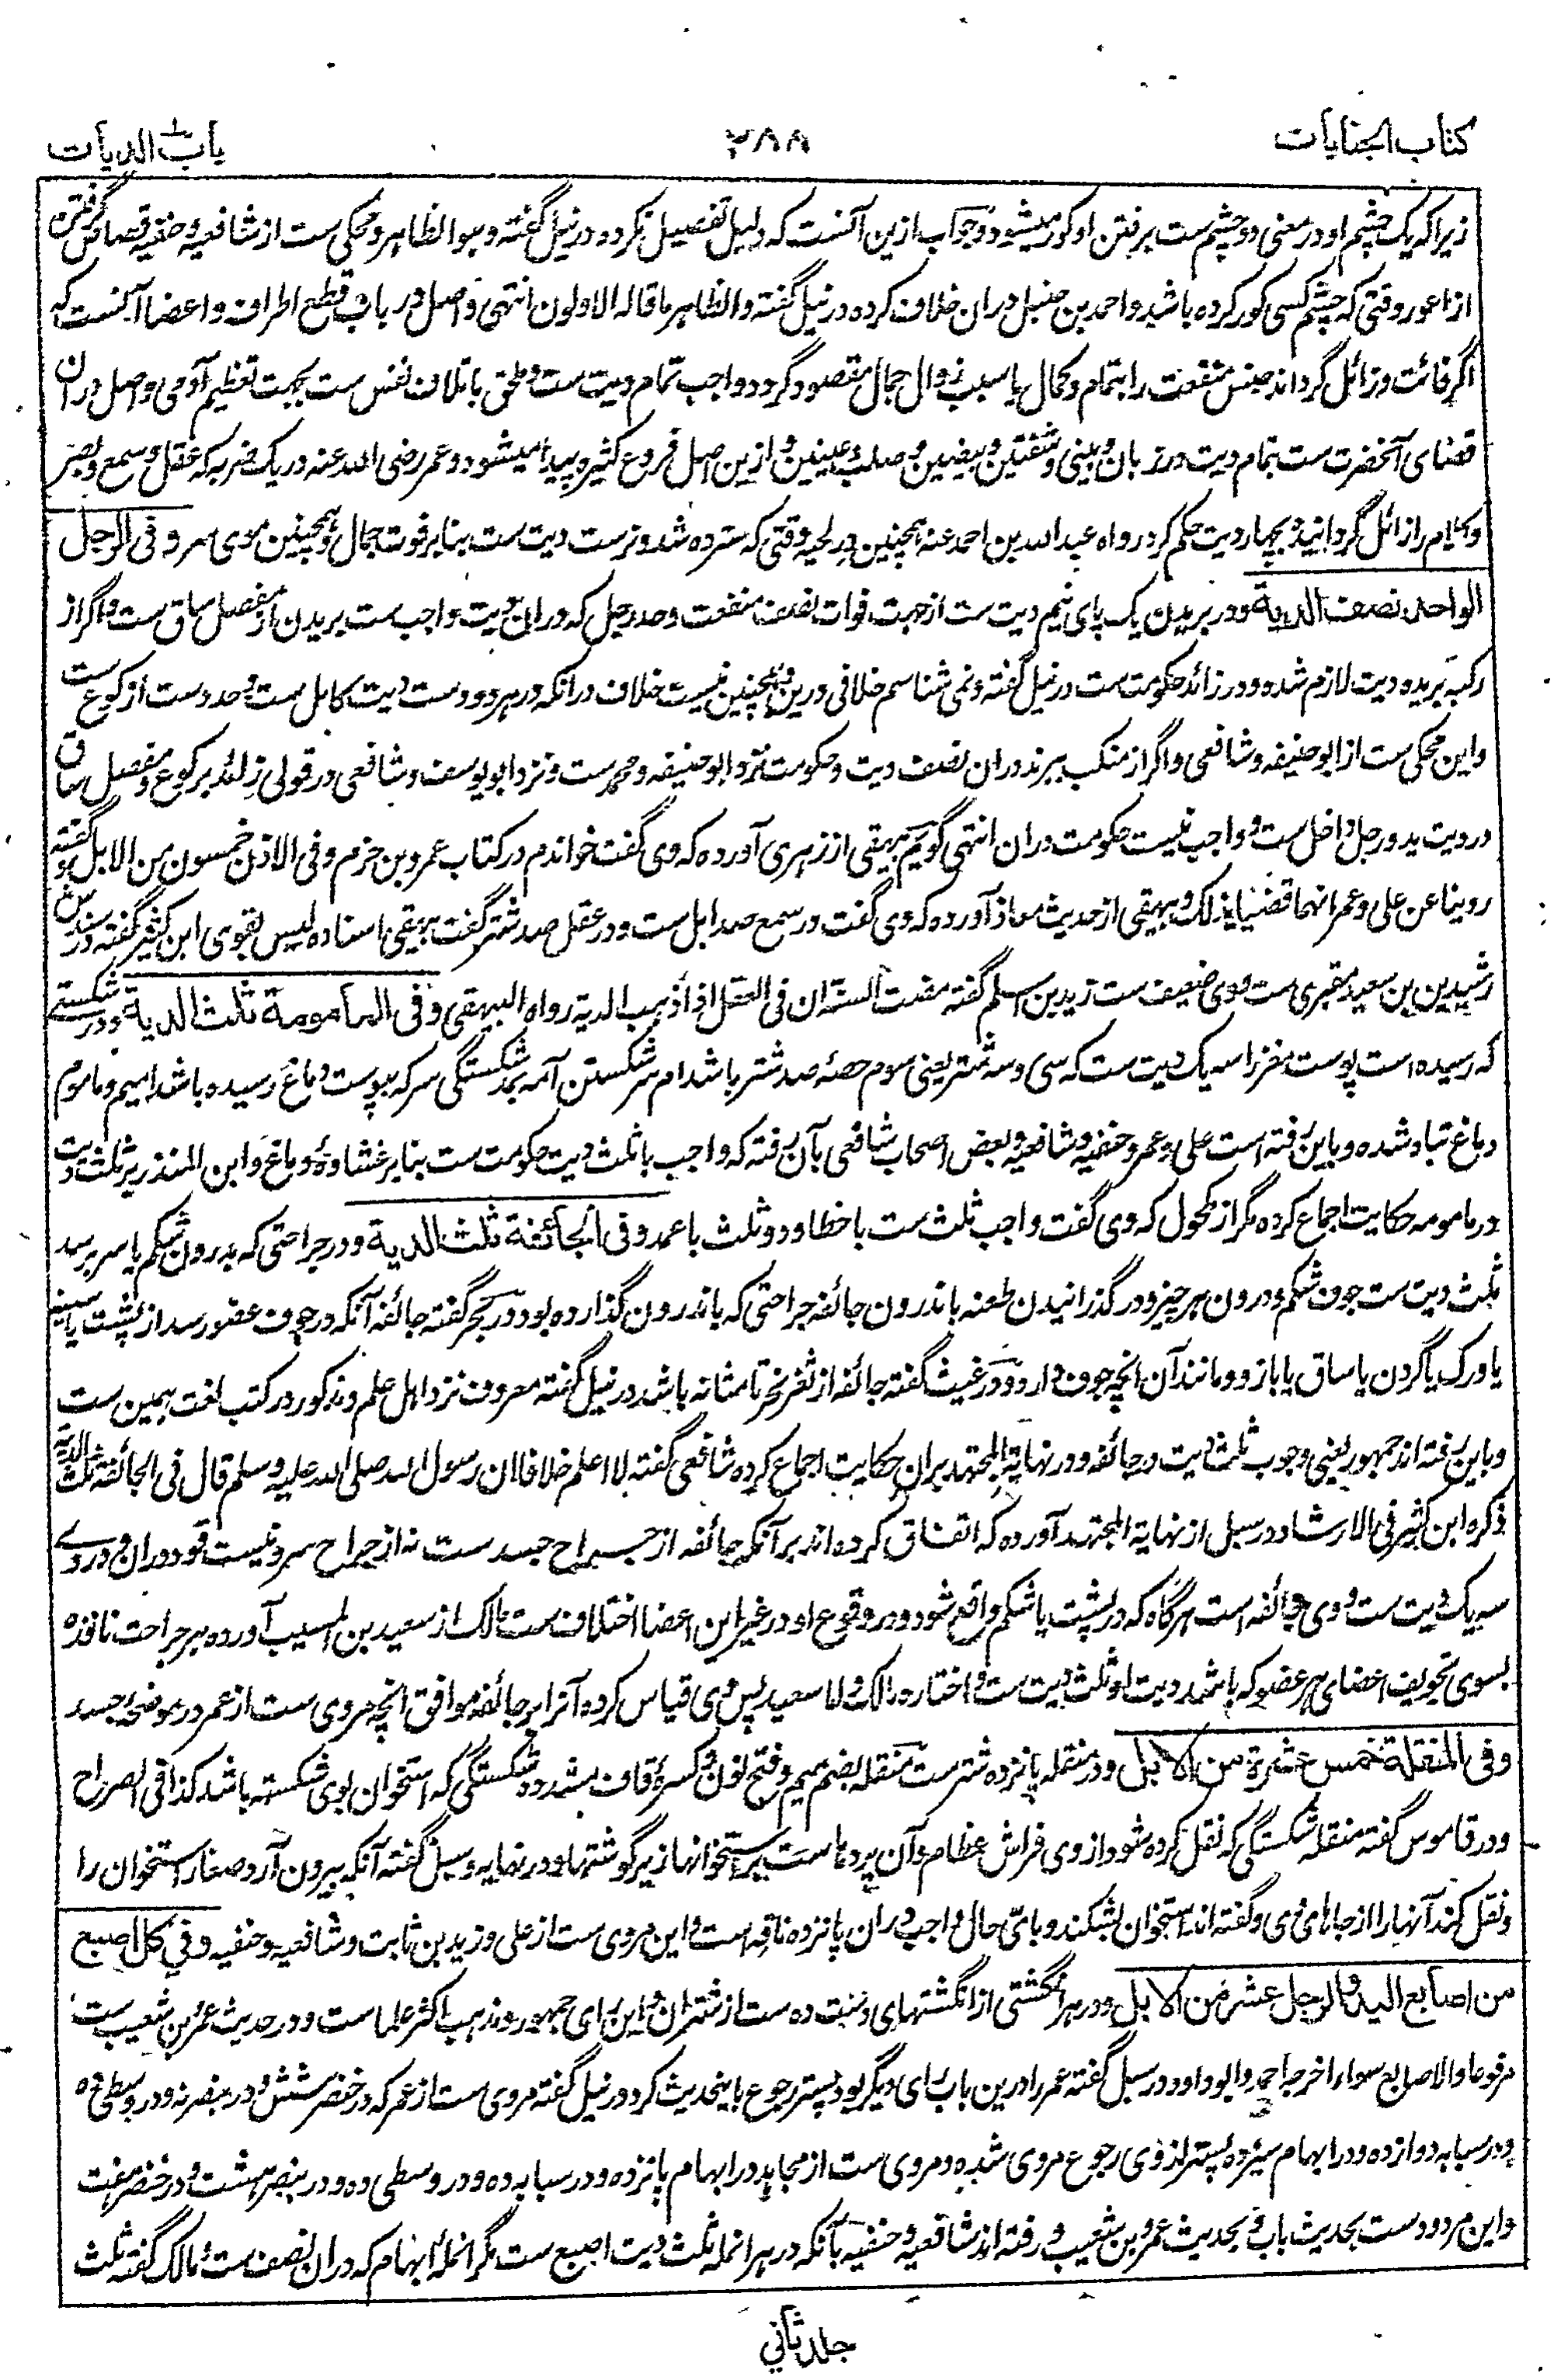 کتاب الجنایات
۲۸۸
باب الدیات
زیرا که یک چشم او در معنی دو چشم ست برفتن او کور میشود و جواب ازین آنست که دلیل تفصیل نکرده در نیل گفته و هو الظاهر و محکی ست از شافعیه و حنفیه قصاص گرفتن
از اعور وقتی که چشم کسی کور کرده باشد و احمد بن حنبل دران خلاف کرده در نیل گفته و الظاهر ما قاله الاولون انتهی و اصل در باب قطع اطراف و اعضا آنست که
اگر فائت و زائل گرداند جنس منفعت را بتمام و کمال یا سبب زوال جمال مقصود گردد واجب تمام دیت ست و ملحق باتلاف نفس ست بجهت تعظیم آدمی و اصل دران
قضای آنحضرت ست بتمام دیت در زبان و بینی و شفتین و بیضتین و صلب و عینین و ازین اصل فروع کثیره پیدا میشود و عمر رضی الله عنه در یک ضربه که عقل و سمع و بصر
و کلام را زائل گردانید بچهار دیت حکم کرد رواه عبد الله بن احمد عنه همچنین در لحیه وقتی که سترده شد و نرست دیت ست بنا بر فوت جمال و همچنین موی سر و فی الرجل
الواحدة نصف الدیة و در بریدن یک پای نیم دیت ست از جهت فوات نصف منفعت و حد رجل که دران دیت واجب ست بریدن از مفصل ساق ست و اگر از
رکبه بریده دیت لازم شده و در زائد حکومت ست در نیل گفته و نمی شناسم خلافی درین و همچنین نیست خلاف درانکه در هر دو دست دیت کامل ست و حد دست از کوع ست
و این محکی ست از ابو حنیفه و شافعی و اگر از منکب ببرند دران نصف دیت و حکومت نزد ابو حنیفه و محمد ست و نزد ابو یوسف و شافعی در قولی زائد بر کوع و مفصل ساق
در دیت ید و رجل داخل ست و واجب نیست حکومت دران انتهی گویم بیهقی از زهری آورده که وی گفت خواندم در کتاب عمرو بن حزم و فی الاذن خمسون من الابل و گفته
روینا عن علی و عمر انهما قضیا بذلک و بیهقی از حدیث معاذ آورده که وی گفت در سمع صد ابل ست و در عقل صد شتر گفت بیهقی اسناده لیس بقوی ابن کثیر گفته در سندش
رشیدین بن سعید مقبری ست و وی ضعیف ست زید بن اسلم گفته مضت السنة ان فی العقل اذا ذهب الدیة رواه البیهقی و فی المأمومة ثلث الدیة و در شکستے
که رسیده است پوست مغز را سه یک دیت ست که سی و سه شتر یعنی سوم حصهٔ صد شتر باشد ام سر شکستن آمه بمد شکستگی سر که بپوست دماغ رسیده باشد امیم و ماموم
دماغ تباه شده و باین رفته است علی و عمر و حنفیه و شافعیه و بعض اصحاب شافعی بآن رفته که واجب با ثلث دیت حکومت ست بنا بر غشاوهٔ دماغ و ابن المنذر بر ثلث دیت
در مامومه حکایت اجماع کرده مگر از مکحول که وی گفت واجب ثلث ست با خطا و دو ثلث با عمد و فی الجائفة ثلث الدیة و در جراحتی که بدرون شکم یا سر برسد
ثلث دیت ست جوف شکم و درون هر چیز و در گذرانیدن طعنه باندرون جائفه جراحتی که باندرون گذارده بود و در بحر گفته جائفه آنکه در جوف عضو رسد از پشت یا سینه
یا ورک یا گردن یا ساق یا بازو و مانند آن انچه جوف دارد و در غیث گفته جائفه از ثغر نحر تا مثانه باشد در نیل گفته معروف نزد اهل علم و مذکور در کتب لغت همین ست
و باین رفته اند جمهور یعنی وجوب ثلث دیت در جائفه و در نهایة المجتهد بران حکایت اجماع کرده شافعی گفته لا اعلم خلافا ان رسول الله صلی الله علیه وسلم قال فی الجائفة ثلث الدیة
ذکره ابن کثیر فی الارشاد و در سبل از نهایة المجتهد آورده که اتفاق کرده اند بر آنکه جائفه از جراح جسد ست نه از جراح سر و نیست قود دران و در وے
سه یک دیت ست و وی جائفه است هرگاه که در پشت یا شکم واقع شود و در وقوع او در غیر این اعضا اختلاف ست مالک از سعید بن المسیب آورده هر جراحت نافذه
بسوی تجویف اعضای هر عضو که باشد دیت او ثلث دیت ست و اختاره مالک و اما سعید پس وی قیاس کرده آنرا بر جائفه موافق انچه مروی ست از عمر در موضحهٔ جسد
و فی المنقلة خمس عشرة من الابل و در منقله پانزده شتر ست منقله بضم میم و فتح نون و کسرهٔ قاف مشدده شکستگی که استخوان بوی شکسته باشد کذا فی الصراح
و در قاموس گفته منقله شکستگی که نقل کرده شود از وی فراش عظام و آن پرده‌ها ست بر استخوانها زیر گوشتها و در نهایه و سبل گفته آنکه بیرون آرد صغار استخوان را
و نقل کند آنها را از جاهای وی و گفته اند استخوان بشکند و بای حال واجب دران پانزده ناقه است و این مروی ست از علی و زید بن ثابت و شافعیه و حنفیه و فی کل اصبع
من اصابع الید و الرجل عشر من الابل و در هر انگشتی از انگشتهای دست ده ست از شتران و این رای جمهور و مذهب اکثر علما ست و در حدیث عمرو بن شعیب ست
مرفوعا و الاصابع سواء اخرجه احمد و ابو داود و در سبل گفته عمر را درین باب رای دیگر بود پستر رجوع باینحدیث کرد و در نیل گفته مروی ست از عمر که در خنصر شش و در بنصر نه و در وسطی ده
و در سبابه دوازده و در ابهام سیزده پستر از وی رجوع مروی شده و مروی ست از مجاهد در ابهام پانزده و در سبابه ده و در وسطی ده و در بنصر هشت و در خنصر هفت
و این مردود ست بحدیث باب و بحدیث عمرو بن شعیب و رفته اند شافعیه و حنفیه بآنکه در هر انمله ثلث دیت اصبع ست مگر انملهٔ ابهام که دران نصف ست و مالک گفته ثلث
جلد ثانی